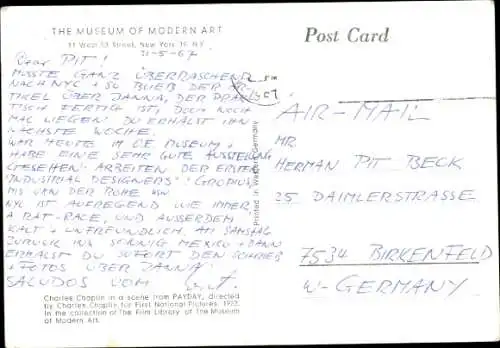 THE MUSEUM OF MODERN ART
11 West 53 Street, New York 19, NY
Post Card
11-5-67
Dear PIT!
MUSSTE GANZ ÜBERRASCHEND
NACH NYC + SO BLIEB DER AR-
TIKEL ÜBER JANNA, DER PRAK-
TISCH FERTIG IST, DOCH NOCH
MAL LIEGEN. DU ERHÄLST IHN
NÄCHSTE WOCHE.
WAR HEUTE IM O.E. MUSEUM +
HABE EINE SEHR GUTE AUSSTELLUNG
GESEHEN: ARBEITEN DER ERSTEN
"INDUSTRIAL DESIGNERS": GROPIUS,
MIS VAN DER ROHE USW
NYC IST AUFREGEND WIE IMMER,
A RAT-RACE, UND AUSSERDEM
KALT + UNFREUNDLICH. AM SAMSTAG
ZURÜCK INS SONNIG MEXICO + DANN
ERHÄLST DU SOFORT DEN SCHRIEB
+ FOTOS ÜBER JANNA!
SALUDOS VOM
Charles Chaplin in a scene from PAYDAY, directed
by Charles Chaplin for First National Pictures. 1922.
In the collection of The Film Library of The Museum
of Modern Art.
Printed in Western Germany
AIR-MAIL
MR.
HERMAN PIT BECK
25 DAIMLERSTRASSE
7534 BIRKENFELD
W-GERMANY